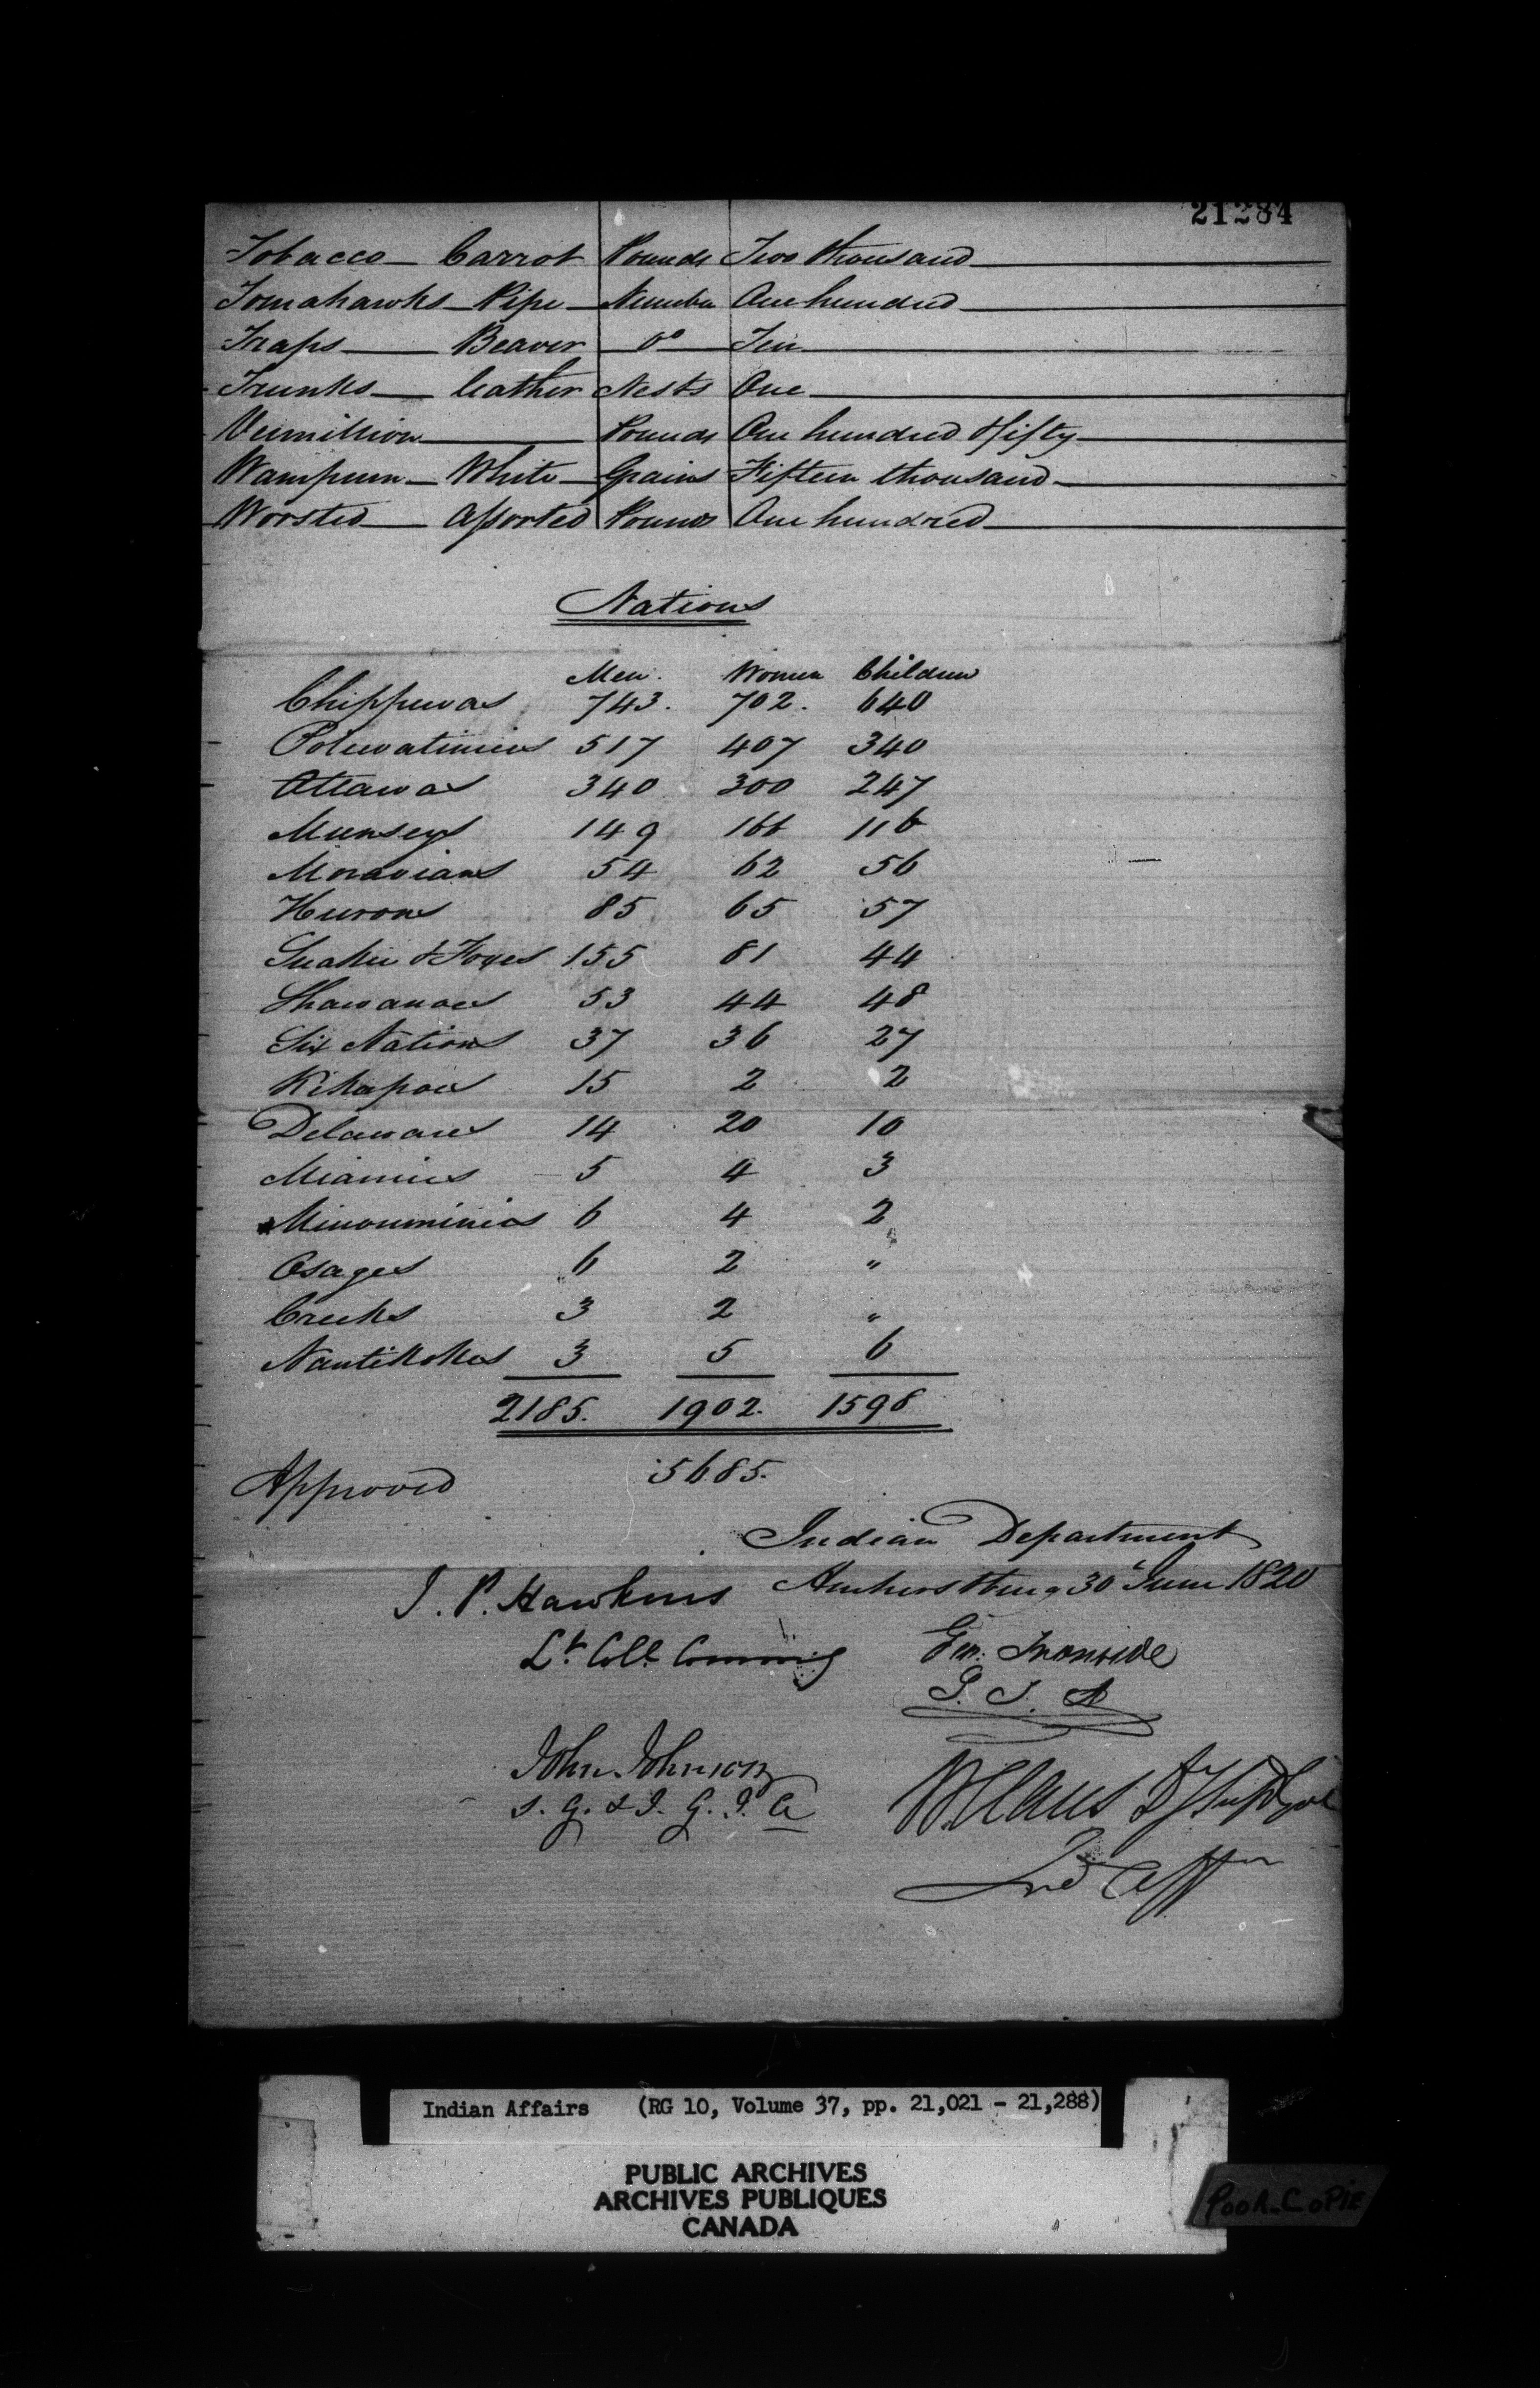 21284
Tobacco Carrot Pounds Two thousand
Tomahawks Pipe Number One hundred
Traps Beaver Do Ten
Trunks leather Nests One
Vermillion Pounds One hundred & fifty
Wampum White Grains Fifteen thousand
Worsted Assorted Pounds One hundred
Nations
Men. Women Children
Chippewas 743. 702. 640
Potewatimies 517 407 340
Ottawas 340 300 247
Munseys 149 166 116
Moravians 54 62 56
Hurons 85 65 57
Saakie & Foxes 155 81 44
Shawanoes 53 44 48
Six Nations 37 36 27
Kikapoes 15 2 2
Delawares 14 20 10
Miamies 5 4 3
Minonminies 6 4 2
Osages 6 2 "
Creeks 3 2 "
Nantikokes 3 5 6
2185. 1902. 1598
5685.
Approved
Indian Department
Amherstburg 30 June 1820
J. P. Hawkins
Lt. Coll. Comming
Geo: Ironside
S. I. A
John Johnson
S. G. & I. G. I. A
W. Claus D
Ind Affrs
Indian Affairs (RG 10, Volume 37, pp. 21,021 - 21,288)
PUBLIC ARCHIVES
ARCHIVES PUBLIQUES
CANADA
POOR COPIE